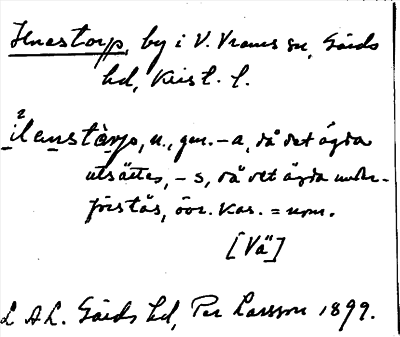 Ilnestorp, by i V. Vrams sn, Gärds
hd, Krist. l.
²ilenstàrp, n., gen. -a, då det ägda
utsättes, -s, då det ägda under-
förstås, övr. kas. = nom.
[Vä]
L A L. Gärds hd, Per Larsson 1899.